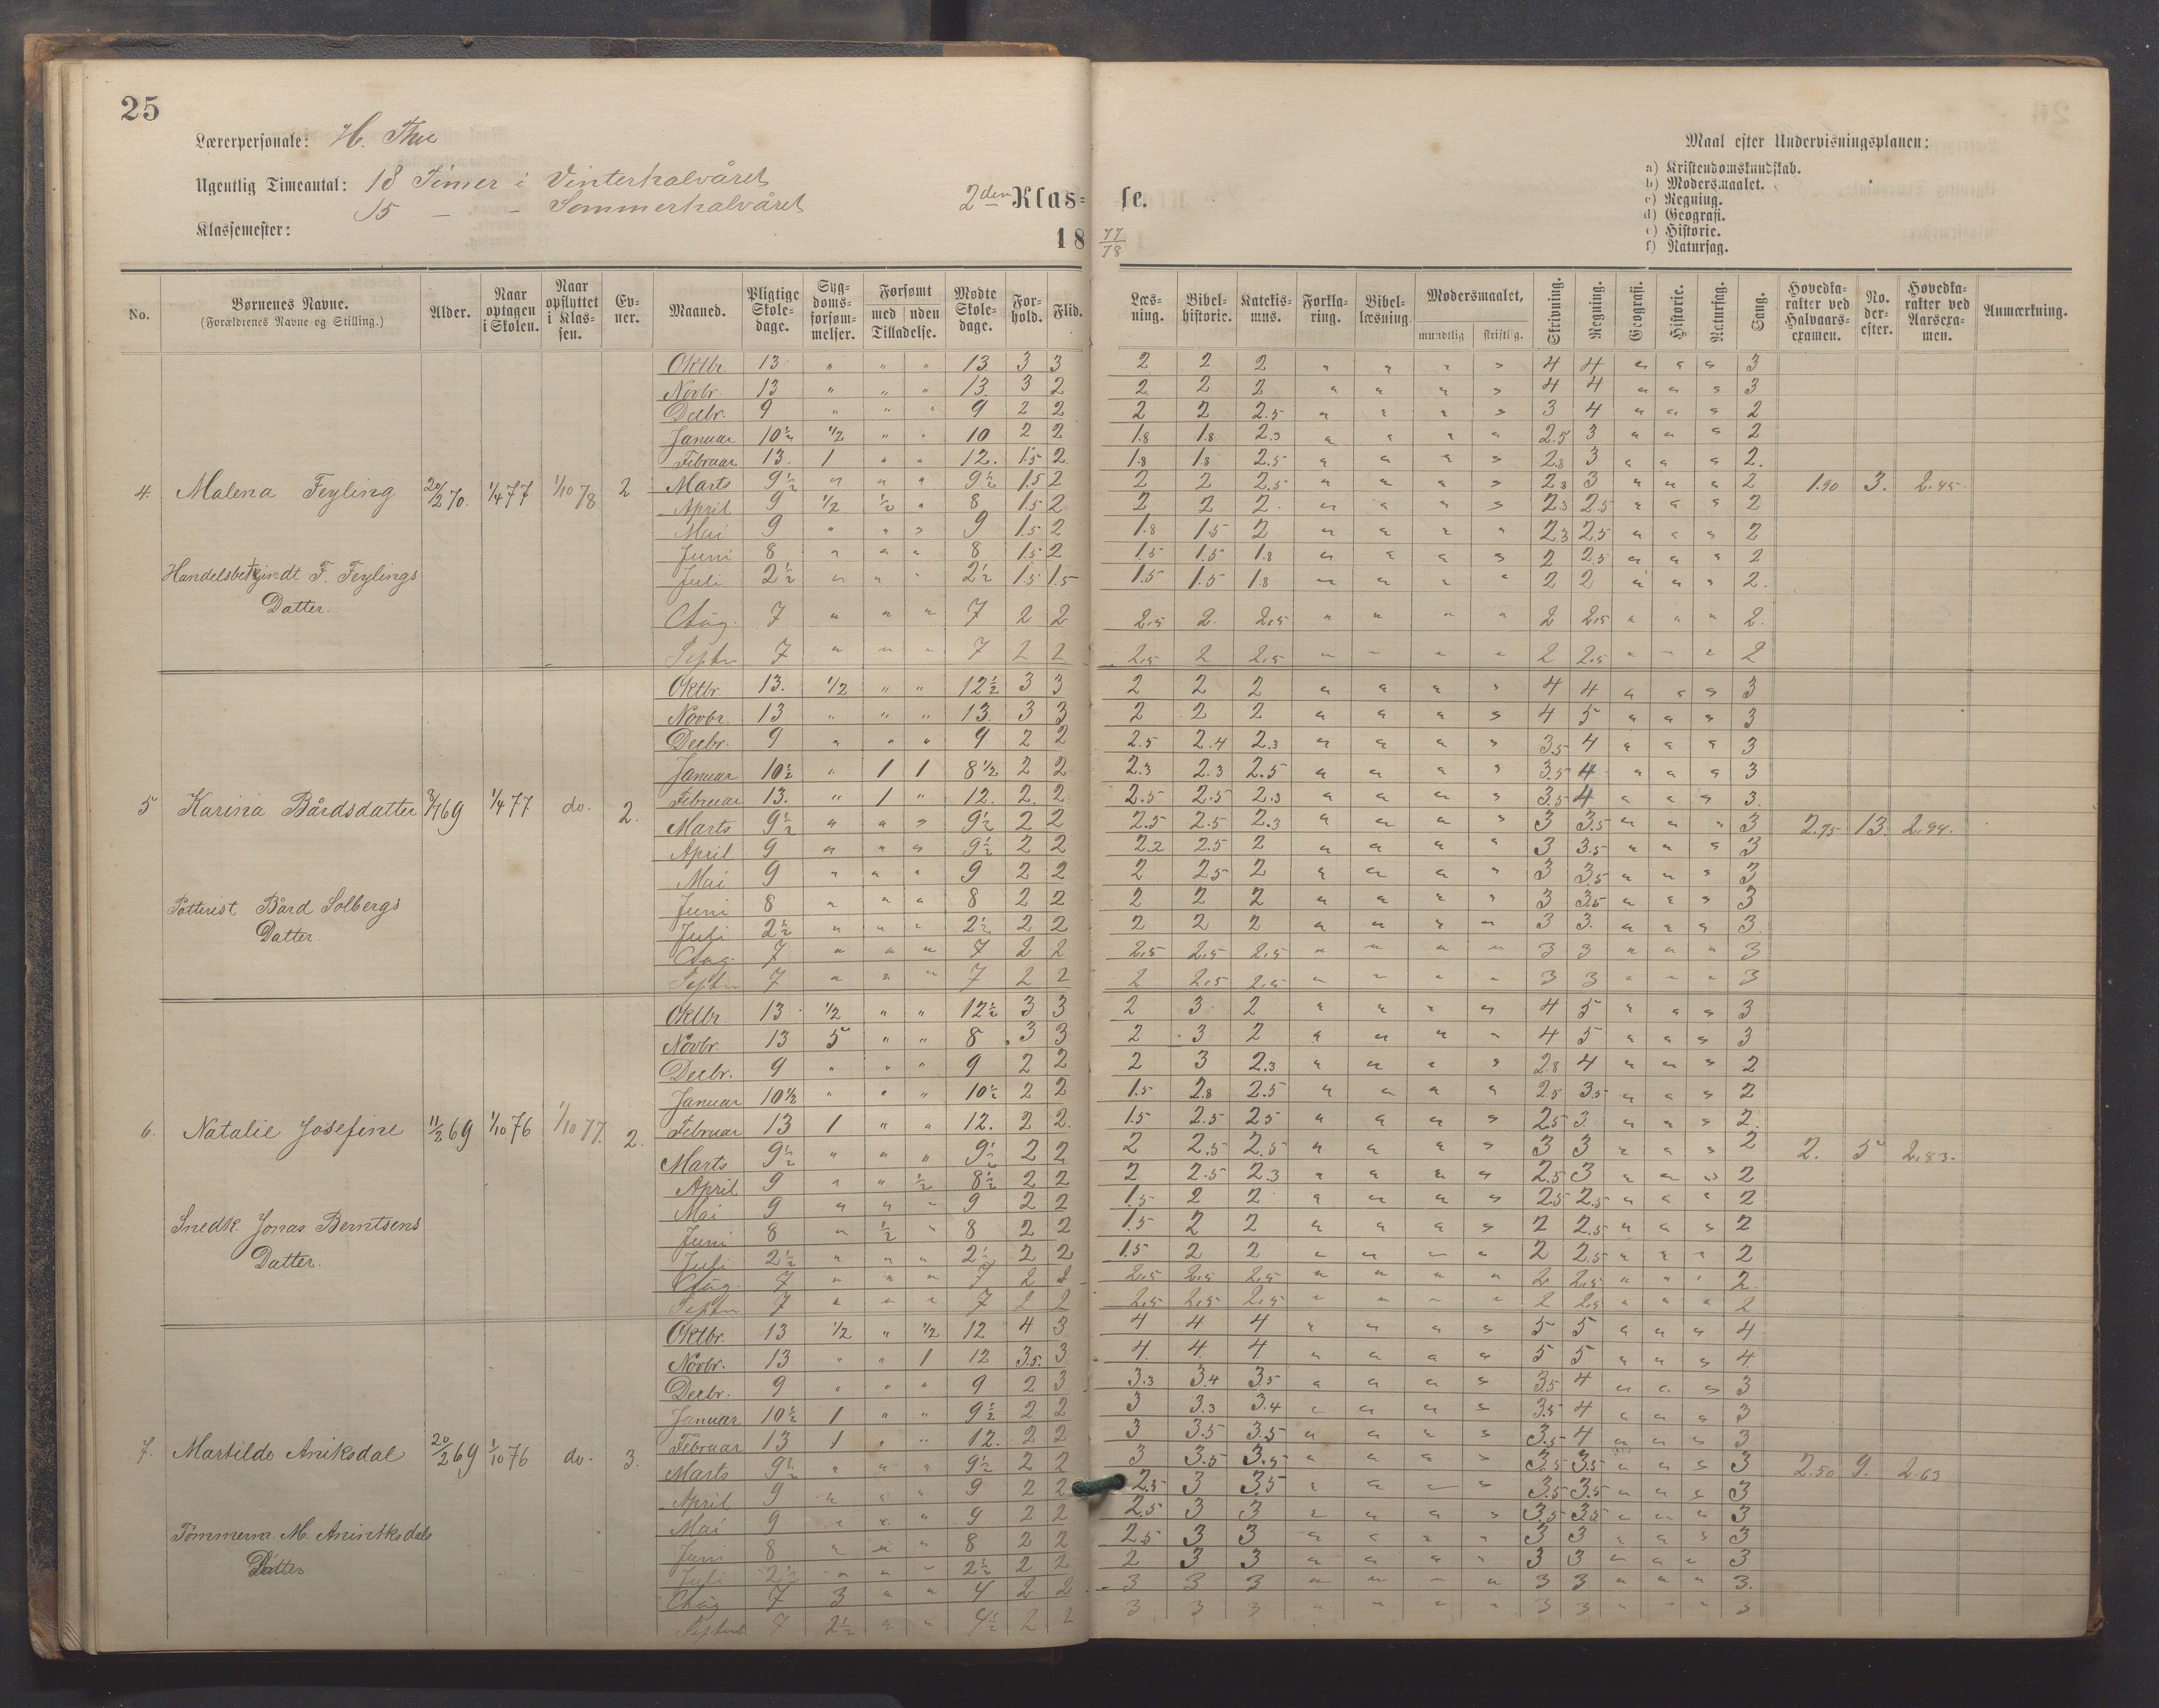 25
Lærerpersonale: H. Thue
Ugentlig Timeantal: 18 Timer i Vinterhalvåret
15 — - Sommerhalvåret
Klassemester:
2den Klas= se.
18 77/78
Maal efter Undervisningsplanen:
a) Kristendomskundskab.
b) Modersmaalet.
c) Regning.
d) Geografi.
e) Historie.
f) Naturfag.
No. | Børnenes Navne. (Forældrenes Navne og Stilling.) | Alder. | Naar optagen i Skolen. | Naar opflyttet i Klassen. | Evner. | Maaned. | Pligtige Skoledage. | Sygdomsforsømmelser. | Forsømt med Tilladelse. | uden Tilladelse. | Mødte Skoledage. | Forhold. | Flid. | Læsning. | Bibelhistorie. | Katekismus. | Forklaring. | Bibellæsning. | Modersmaalet, mundtlig | skriftlig. | Skrivning. | Regning. | Geografi. | Historie. | Naturfag. | Sang. | Hovedkarakter ved Halvaarsexamen. | No. derefter. | Hovedkarakter ved Aarsexamen. | Anmærkning.
4. Malena Feyling 20/2 70. 1/4 77 1/10 78 2 1.90 3. 2.45.
Handelsbetjendt F. Feylings
Datter.
Oktbr. 13 " " " 13 3 3 2 2 2 " " " " 4 4 " " " 3
Novbr. 13 " " " 13. 3 2 2 2 2 " " " " 4 4 " " " 3
Decbr. 9 " " " 9 2 2 2 2 2.5 " " " " 3 4 " " " 2
Januar 10½ 1/2 " " 10 2 2 1.8 1.8 2.3 " " " " 2.5 3 " " " 2
Februar 13. 1 " " 12. 1.5 2. 1.8 1.8 2.5 " " " " 2.8 3 " " " 2.
Marts 9½ " " " 9½ 1.5 2 2 2 2.5 " " " " 2.8 3 " " " 2
April 9 1/2 ½ " 8 1.5 2 2 2 2. " " " " 2.3 2.5 " " " 2
Mai 9 " " " 9 1.5 2 1.8 1.5 2 " " " " 2.3 2.5 " " " 2
Juni 8 " " " 8 1.5 2 1.5 1.5 1.8 " " " " 2 2.5 " " " 2
Juli 2½ " " " 2½ 1.5 1.5 1.5 1.5 1.8 " " " " 2 2 " " " 2.
Aug. 7 " " " 7 2 2 2.5 2. 2.5 " " " " 2 2.5 " " " 2.
Septbr 7 " " " 7 2 2 2.5 2 2.5 " " " " 2 2.5 " " " 2
5 Karina Bårdsdatter 3/7 69 1/4 77 do. 2. 2.75 13. 2.94.
Potterist Bård Solbergs
Datter.
Oktbr. 13. 1/2 " " 12½ 3 3 2 2 2 " " " " 4 4 " " " 3
Novbr. 13 " " " 13. 3 3 2 2 2 " " " " 4 5 " " " 3
Decbr. 9 " " " 9 2 2 2.5 2.4 2.3 " " " " 3.5 4 " " " 3
Januar 10½ " 1 1 8½ 2 2 2.3 2.3 2.5 " " " " 3.5 4 " " " 3
Februar 13. " 1 " 12. 2. 2. 2.5 2.5 2.3 " " " " 3.5 4 " " " 3.
Marts 9½ " " " 9½ 2 2 2.5 2.5 2.3 " " " " 3 3.5 " " " 3
April 9 " " " 9½ 2 2 2.2 2.5 2 " " " " 3 3.5 " " " 3
Mai 9 " " " 9 2 2 2 2.5 2 " " " " 3 3.5 " " " 3
Juni 8 " " " 8 2 2 2 2 2 " " " " 3 3.5 " " " 3
Juli 2½ " " " 2½ 2 2 2 2 2 " " " " 3 3. " " " 3.
Aug. 7 " " " 7 2 2 2.5 2.5 2.5 " " " " 3 3 " " " 3
Septbr 7 " " " 7 2 2 2 2.5 2.5 " " " " 3 3 " " " 3
6. Natalie Josefine 11/2 69 1/10 76 1/10 77. 2. 2. 5 2.83.
Snedk. Jonas Berntsens
Datter.
Oktbr. 13 1/2 " " 12½ 3 3 2 3 2 " " " " 4 5 " " " 3
Novbr. 13 5 " " 8 3 3 2 3 2 " " " " 4 5 " " " 3
Decbr. 9 " " " 9 2 2 2 3 2.3 " " " " 2.8 4 " " " 2
Januar 10½ " " " 10½ 2 2 1.5 2.8 2.5 " " " " 2.5 3.5 " " " 2
Februar 13 1 " " 12. 2 2. 1.5 2.5 2.5 " " " " 2.5 3. " " " 2.
Marts 9½ " " " 9½ 2 2 2 2.5 2.5 " " " " 3 3 " " " 2
April 9 " " ½ 8½ 2 2 2 2.5 2.3 " " " " 2.5 3 " " " 2
Mai 9 " " " 9 2 2 1.5 2 2 " " " " 2.5 2.5 " " " 2
Juni 8 " ½ " 8 2 2 1.5 2 2 " " " " 2 2.5 " " " 2
Juli 2½ " " " 2½ 2 2 1.5 2 2 " " " " 2 2.5 " " " 2
Aug. 7 " " " 7 2 2 2.5 2.5 2.5 " " " " 2 2.5 " " " 2.
Septbr 7 " " " 7 2 2 2.5 2.5 2.5 " " " " 2 2.5 " " " 2
7. Martilde Aniksdal 20/2 69 1/10 76 do. 3. 2.50 9. 2.63
Tømmerm. M. Aniniksdals
Datter
Oktbr. 13 1/2 " 1/2 12 4 3 4 4 4 " " " " 5 5 " " " 4
Novbr. 13 " " 1 12 3.5. 3 4. 4. 4 " " " " 5 5 " " " 4.
Decbr. 9 " " " 9 2 3 3.3 3.4 3.5 " " " " 3.5 4 " " " 3
Januar 10½ 1 " " 9½ 2 2 3 3.3 3.4 " " " " 3.5 4 " " " 3
Februar 13 1 " " 12. 2 2 3 3.5 3.5 " " " " 3.5 4 " " " 3
Marts 9½ " " " 9½ 2 2 3 3.5 3.5 " " " " 3.5 3.5 " " " 3
April 9 " " " 9 2 2 2.5 3 3.5 " " " " 3.5 3.5 " " " 3
Mai 9 " " " 9 2 2 2.5 3 3 " " " " 3.5 3.5 " " " 3
Juni 8 " " " 8 2 2 2.5 3 3 " " " " 3 3 " " " 3
Juli 2½ " " " 2½ 2 2 2 3 3 " " " " 3 3 " " " 3
Aug 7 3 " " 4 2 2 3 3 3 " " " " 3 3 " " " 3.
Septbr 7 2½ " " 4½ 2 2 3 3 3 " " " " 3 3 " " " 3